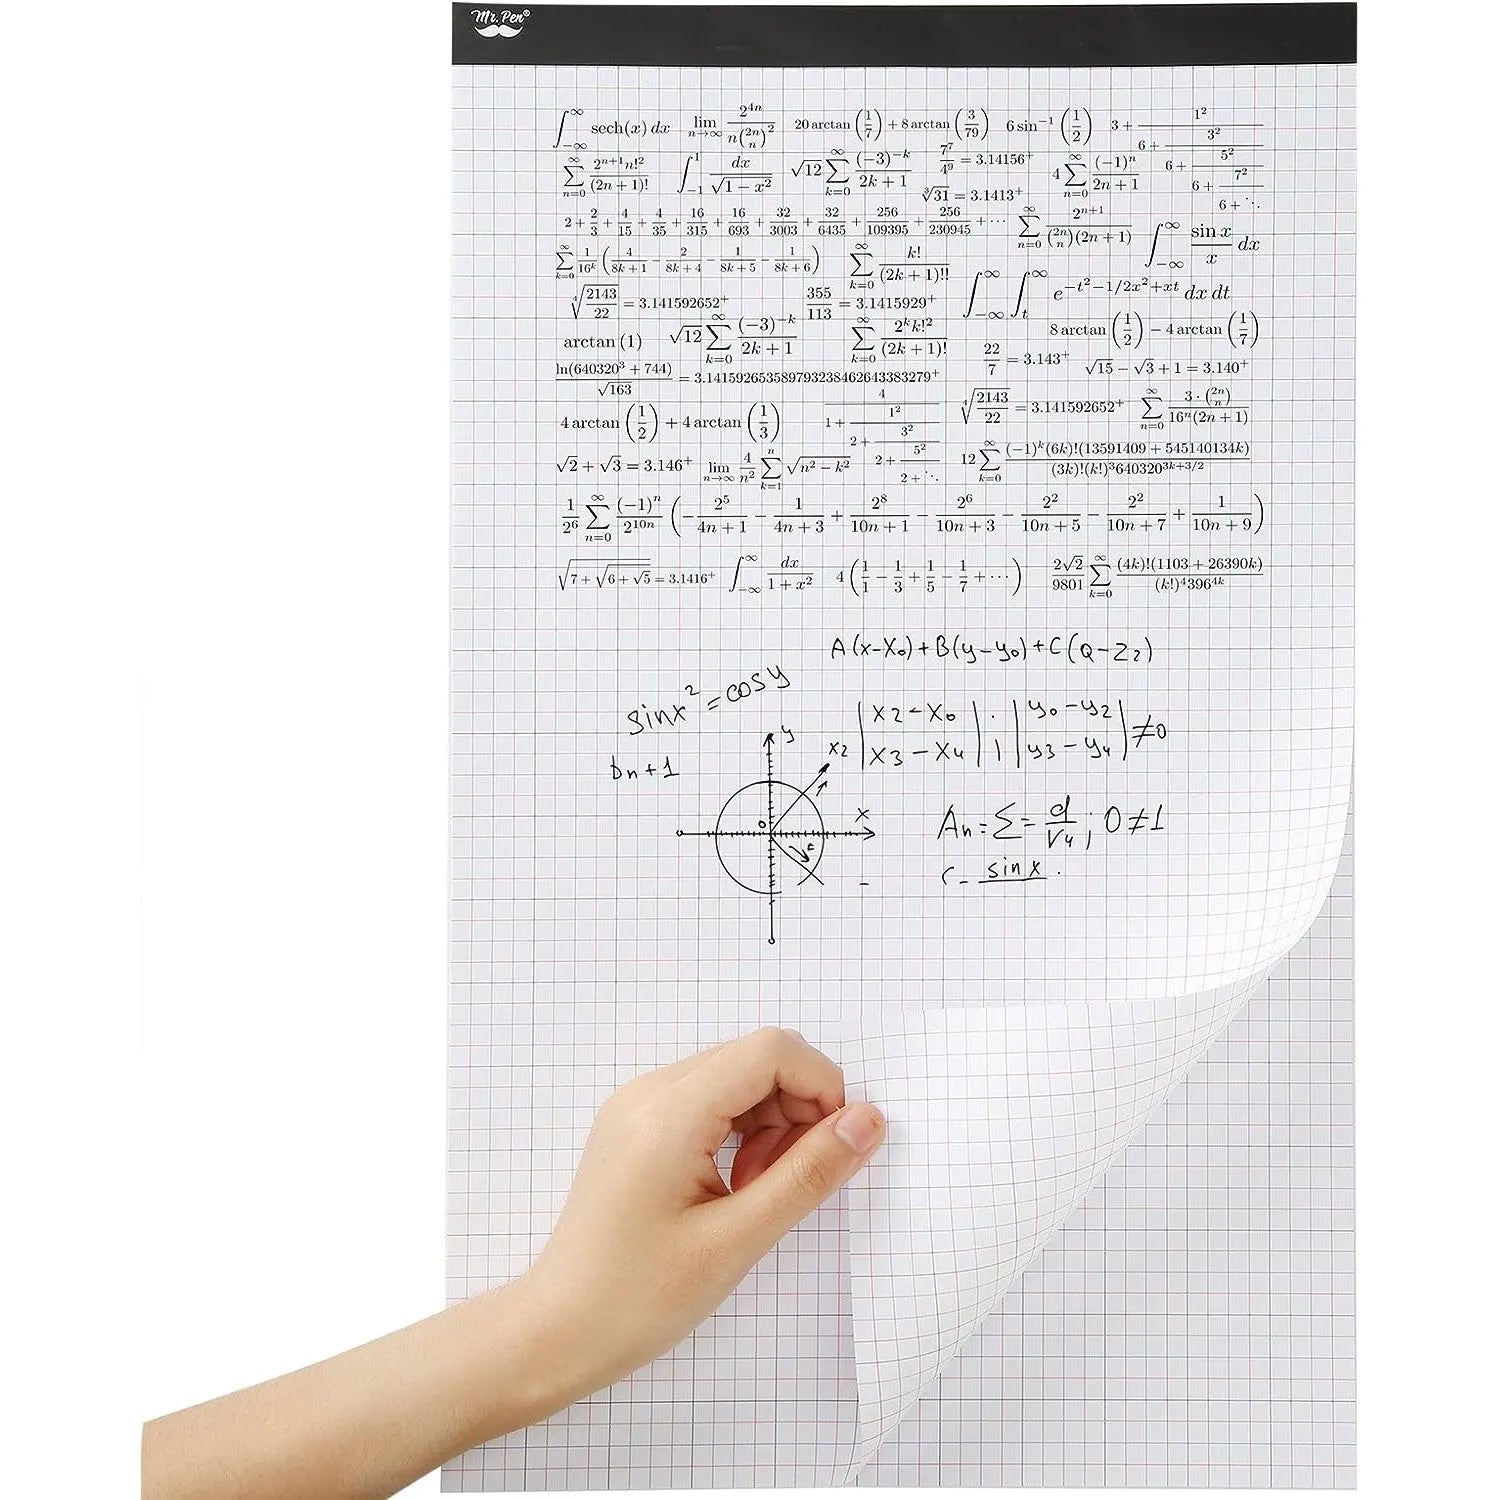 Mr. Pen®
∫_{-∞}^{∞} sech(x) dx   lim_{n→∞} 2^{4n} / (n \binom{2n}{n}^2)   20 arctan(1/7) + 8 arctan(3/79)   6 sin^{-1}(1/2)   3 + 1^2/(6 + 3^2/(6 + 5^2/(6 + 7^2/(6 + ⋱))))
∑_{n=0}^{∞} 2^{n+1} n!^2 / (2n + 1)!   ∫_{-1}^{1} dx/√(1 − x^2)   √12 ∑_{k=0}^{∞} (−3)^{−k} / (2k + 1)   7^7/4^9 = 3.14156^+   4 ∑_{n=0}^{∞} (−1)^n / (2n + 1)
∛31 = 3.1413^+
2 + 2/3 + 4/15 + 4/35 + 16/315 + 16/693 + 32/3003 + 32/6435 + 256/109395 + 256/230945 + ⋯   ∑_{n=0}^{∞} 2^{n+1} / (\binom{2n}{n}(2n + 1))   ∫_{-∞}^{∞} sin x / x dx
∑_{k=0}^{∞} 1/16^k (4/(8k + 1) − 2/(8k + 4) − 1/(8k + 5) − 1/(8k + 6))   ∑_{k=0}^{∞} k! / (2k + 1)!!
∜(2143/22) = 3.141592652^+   355/113 = 3.1415929^+   ∫_{-∞}^{∞} ∫_{t}^{∞} e^{−t^2−1/2x^2+xt} dx dt
arctan(1)   √12 ∑_{k=0}^{∞} (−3)^{−k} / (2k + 1)   ∑_{k=0}^{∞} 2^k k!^2 / (2k + 1)!   8 arctan(1/2) − 4 arctan(1/7)
22/7 = 3.143^+   √15 − √3 + 1 = 3.140^+
ln(640320^3 + 744)/√163 = 3.141592653589793238462643383279^+
4 arctan(1/2) + 4 arctan(1/3)   4/(1 + 1^2/(2 + 3^2/(2 + 5^2/(2 + ⋱))))   ∜(2143/22) = 3.141592652^+   ∑_{n=0}^{∞} 3 · \binom{2n}{n} / (16^n(2n + 1))
√2 + √3 = 3.146^+   lim_{n→∞} 4/n^2 ∑_{k=1}^{n} √(n^2 − k^2)   12 ∑_{k=0}^{∞} (−1)^k(6k)!(13591409 + 545140134k) / ((3k)!(k!)^3 640320^{3k+3/2})
1/2^6 ∑_{n=0}^{∞} (−1)^n/2^{10n} (−2^5/(4n + 1) − 1/(4n + 3) + 2^8/(10n + 1) − 2^6/(10n + 3) − 2^2/(10n + 5) − 2^2/(10n + 7) + 1/(10n + 9))
√(7 + √(6 + √5)) = 3.1416^+   ∫_{-∞}^{∞} dx/(1 + x^2)   4(1/1 − 1/3 + 1/5 − 1/7 + ⋯)   2√2/9801 ∑_{k=0}^{∞} (4k)!(1103 + 26390k) / ((k!)^4 396^{4k})
A(x−X₀)+B(y−y₀)+C(Q−Z₂)
sinx² = cosy
|X2−X₀| . |y₀−y₂|
|X3−X4| | |y3−y4| ≠0
bn+1
y
x2
x
0
An = Σ = d/√4; 0≠1
sinx